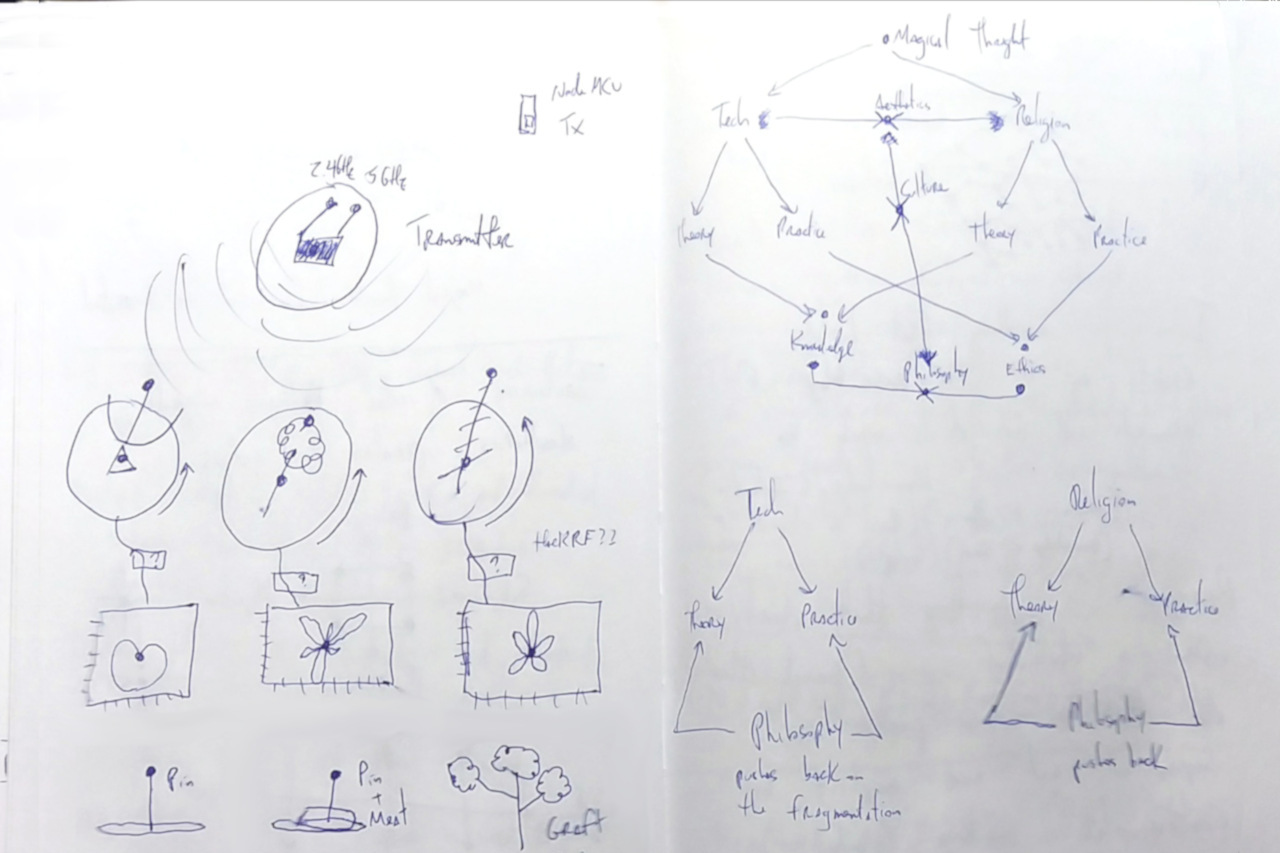 Node MCU
TX
2.4GHz 5GHz
Transmitter
HackRF??
?
?
?
Pin
Pin
+
Meat
Graft
Magical Thought
Tech
Aesthetics
Religion
Culture
Theory
Practice
Theory
Practice
Knowledge
Philosophy
Ethics
Tech
Theory
Practice
Philosophy
pushes back on
the fragmentation
Religion
Theory
Practice
Philosophy
pushes back